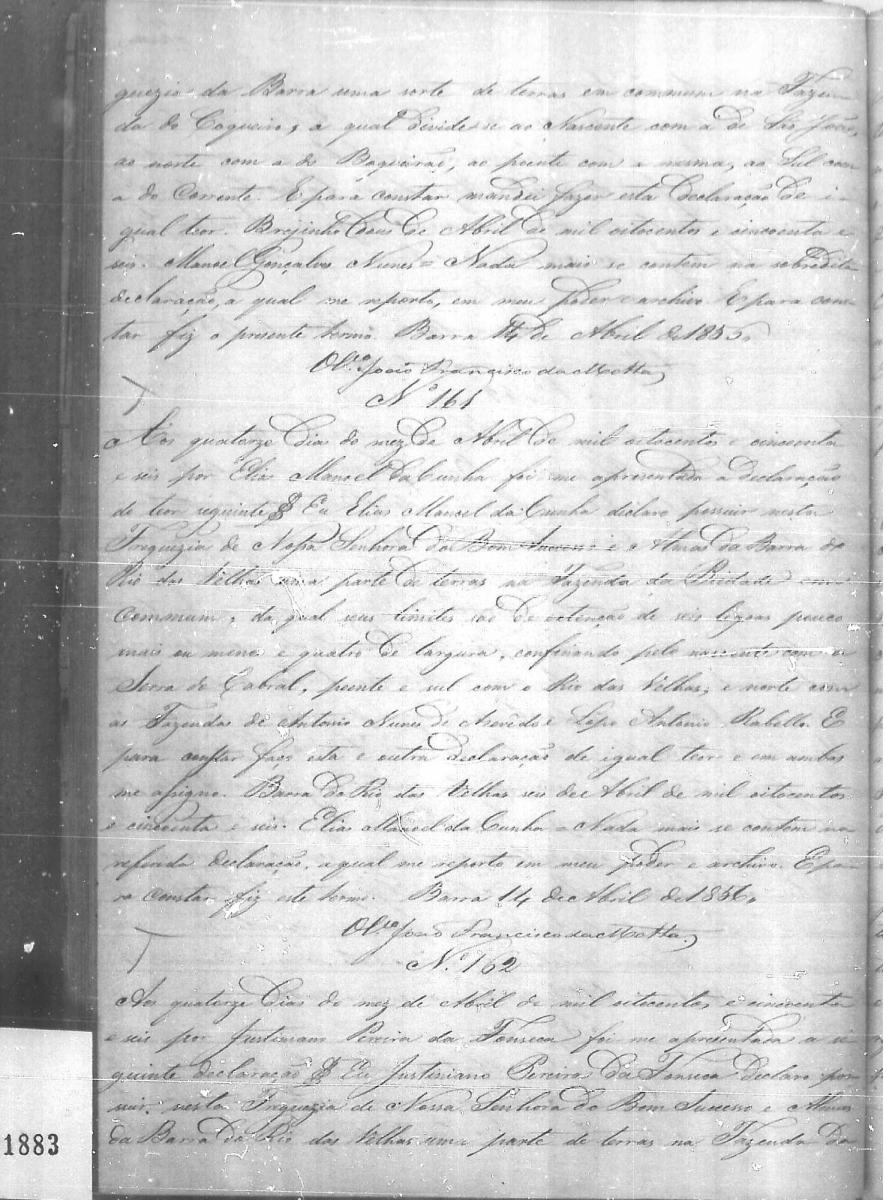 guezia da Barra uma sorte de terras em commum na Fazen
da do Coqueiro, a qual divide-se ao Nascente com a de São João,
ao norte com a do Boqueirão, ao poente com a mesma, ao Sul com
a do Corrente. E para constar mandei fazer esta declaração de i-
gual teor. Brejinho dous de Abril de mil oitocentos e cincoenta e
seis. Manoel Gonçalves Nunes = Nada mais se contem na sobredita
declaração, a qual me reporto, em meu poder e archivo E para cons
tar fiz o presente termo. Barra 14 de Abril de 1856.
O Vigro João Francisco da Motta
Nº 161
Aos quatorze dias do mez de Abril de mil oitocentos e cincoenta
e seis por Elias Manoel da Cunha foi me apresentada a declaração
do teor seguinte § Eu Elias Manoel da Cunha declaro possuir nesta
Freguezia de Nossa Senhora do Bom Sucesso e Almas da Barra do
Rio das Velhas uma parte de terras na Fazenda da Piedade em
Commum, da qual seus limites são de extenção de seis legoas pouco
mais ou menos e quatro de largura, confinando pelo nascente com a
Serra do Cabral, poente e sul com o Rio das Velhas; e norte com
as Fazendas de Antonio Nunes de Azevedo e Lopo Antonio Rabello. E
para constar faço esta e outra declaração de igual teor e em ambas
me assigno. Barra do Rio das Velhas seis de Abril de mil oitocentos
e cincoenta e seis. Elias Manoel da Cunha = Nada mais se contem na
referida declaração, a qual me reporto em meu poder e archivo. E pa-
ra constar fiz este termo. Barra 14 de Abril de 1856.
O Vigro João Francisco da Motta
N. 162
Aos quatorze dias do mez de Abril de mil oitocentos e cincoenta
e seis por Justiniano Pereira da Fonseca foi me apresentada a se
guinte declaração § Eu Justiniano Pereira da Fonseca declaro pos
suir nesta Freguezia de Nossa Senhora do Bom Sucesso e Almas
da Barra do Rio das Velhas uma parte de terras na Fazenda da
1883